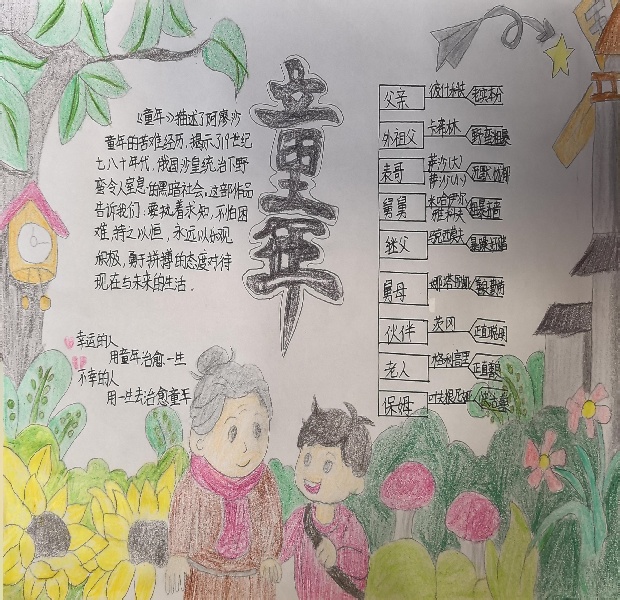 童年
《童年》描述了阿廖沙
童年的苦难经历,揭示了19世纪
七八十年代,俄国沙皇统治下野
蛮令人窒息的黑暗社会,这部作品
告诉我们,要执着求知,不怕困
难,持之以恒,永远以乐观
积极,勇于拼搏的态度对待
现在与未来的生活.
幸运的人
用童年治愈一生
不幸的人
用一生去治愈童年
父亲
外祖父 卡希林 野蛮粗暴
表哥 萨沙(大)
萨沙(小)
舅舅 米哈伊尔
雅科夫
继父
舅母
伙伴 茨冈 正直聪明
老人 格里戈里 正直
保姆